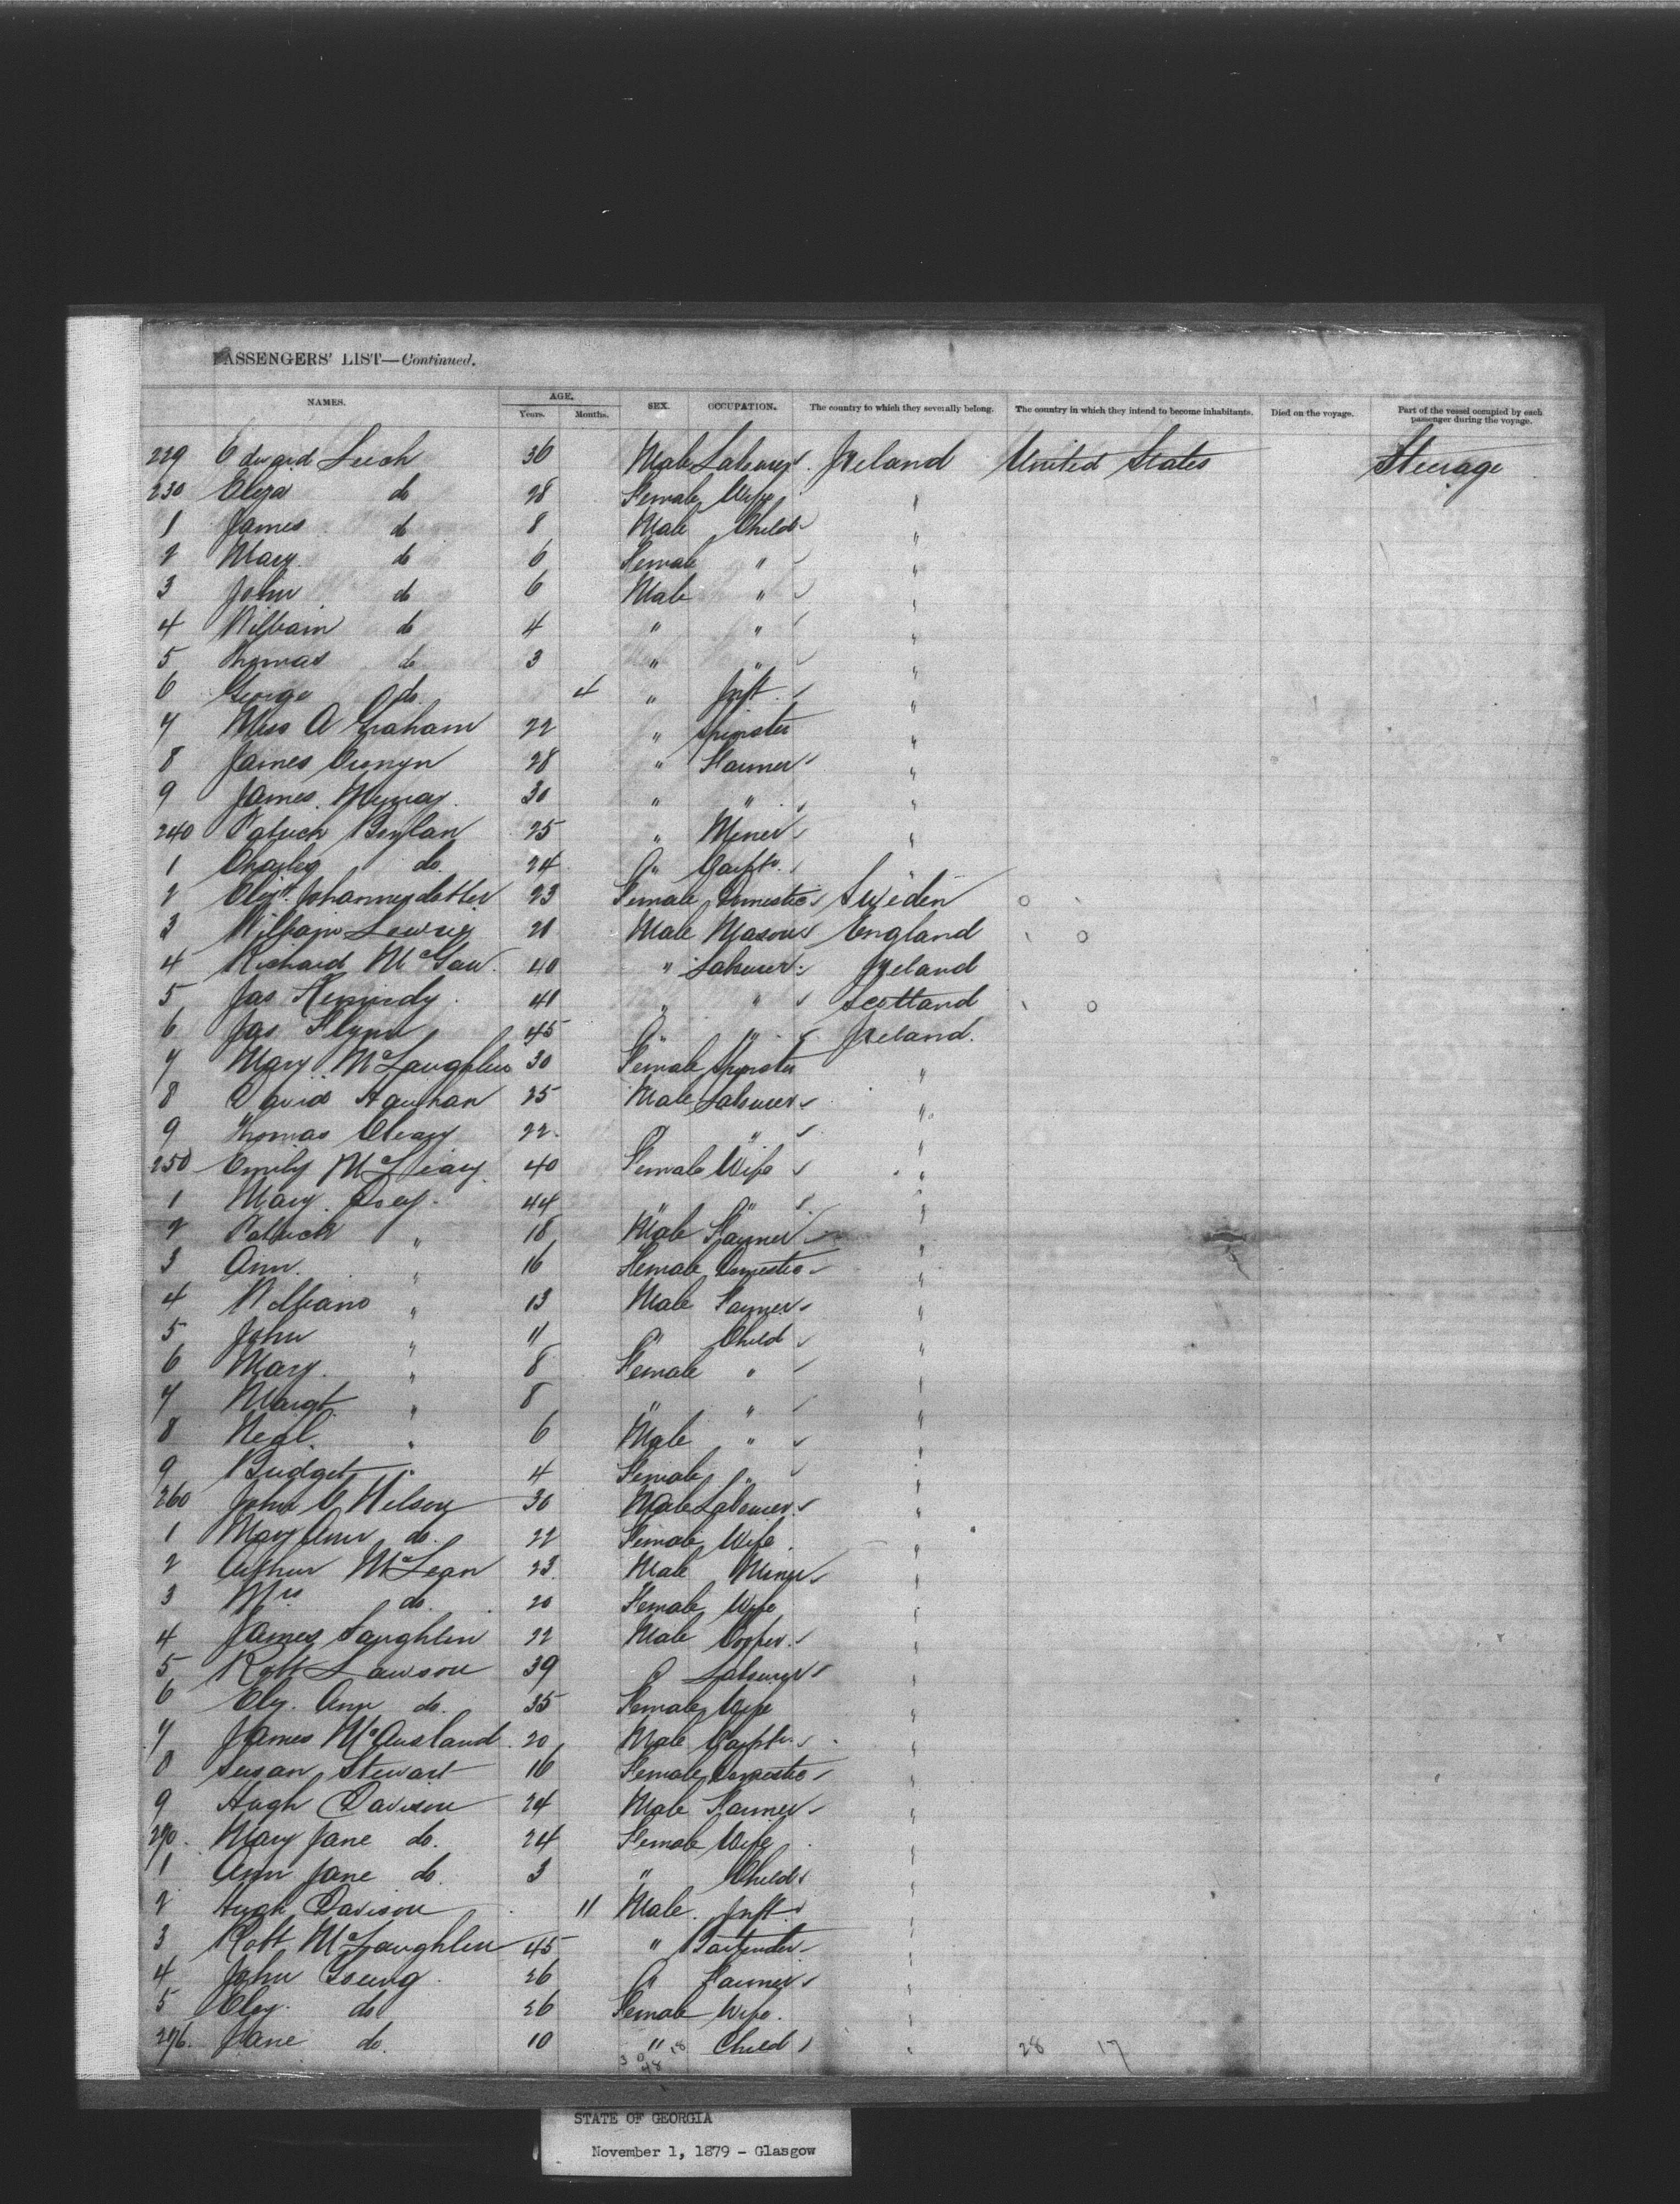 PASSENGERS' LIST—Continued.
NAMES. AGE. Years. Months. SEX. OCCUPATION. The country to which they severally belong. The country in which they intend to become inhabitants. Died on the voyage. Part of the vessel occupied by each passenger during the voyage.
229 Edward Leech 30 Male Labourer Ireland United States Steerage
230 Eliza do 28 Female Wife "
1 James do 8 Male Child "
2 Mary do 6 Female " "
3 John do 6 Male " "
4 William do 4 " " "
5 Thomas do 3 " " "
6 George do 4 " Inft "
7 Miss A Graham 22 " Spinster "
8 James 28 " Farmer "
9 James Murray 30 " " "
240 Patrick Boylan 25 " Miner "
1 Charles do. 24 " Carptr. "
2 Elizt. Johannesdotter 23 Female Domestic Sweden
3 William 21 Male Mason England
4 Richard McGaw 40 " Labourer Ireland
5 Jas Kennedy 41 " " Scotland
6 Jas Flynn 45 " " Ireland.
7 Mary McLaughlin 30 Female Spinster "
8 David 25 Male Labourer "
9 Thomas Cleary 22 " " "
250 Emily 40 Female Wife "
1 Mary 44 " " "
2 Patrick " 18 Male Farmer "
3 Ann " 16 Female Domestic "
4 William " 13 Male Farmer "
5 John " 11 " Child "
6 Mary " 8 Female " "
7 Margt " 8 " " "
8 Neal " 6 Male " "
9 Bridget " 4 Female " "
260 John 30 Male Labourer "
1 Mary Ann do. 22 Female Wife "
2 Arthur McLean 23 Male Miner "
3 Mrs do. 20 Female Wife "
4 James Laughlin 22 Male "
5 Robt Lawson 39 " Labourer "
6 Eliz. Ann do. 35 Female Wife "
7 James McAusland 20 Male Carptr. "
8 Susan Stewart 16 Female Domestic "
9 Hugh Davison 24 Male Farmer "
270 Mary Jane do. 24 Female Wife "
1 Ann Jane do. 3 " Child "
2 Hugh Davison 11 Male Inft "
3 Robt McLaughlin 45 " Bartender "
4 John 26 " Farmer "
5 Eliz. do 26 Female Wife "
276. Jane do. 10 " Child " 28 17
STATE OF GEORGIA
November 1, 1879 - Glasgow